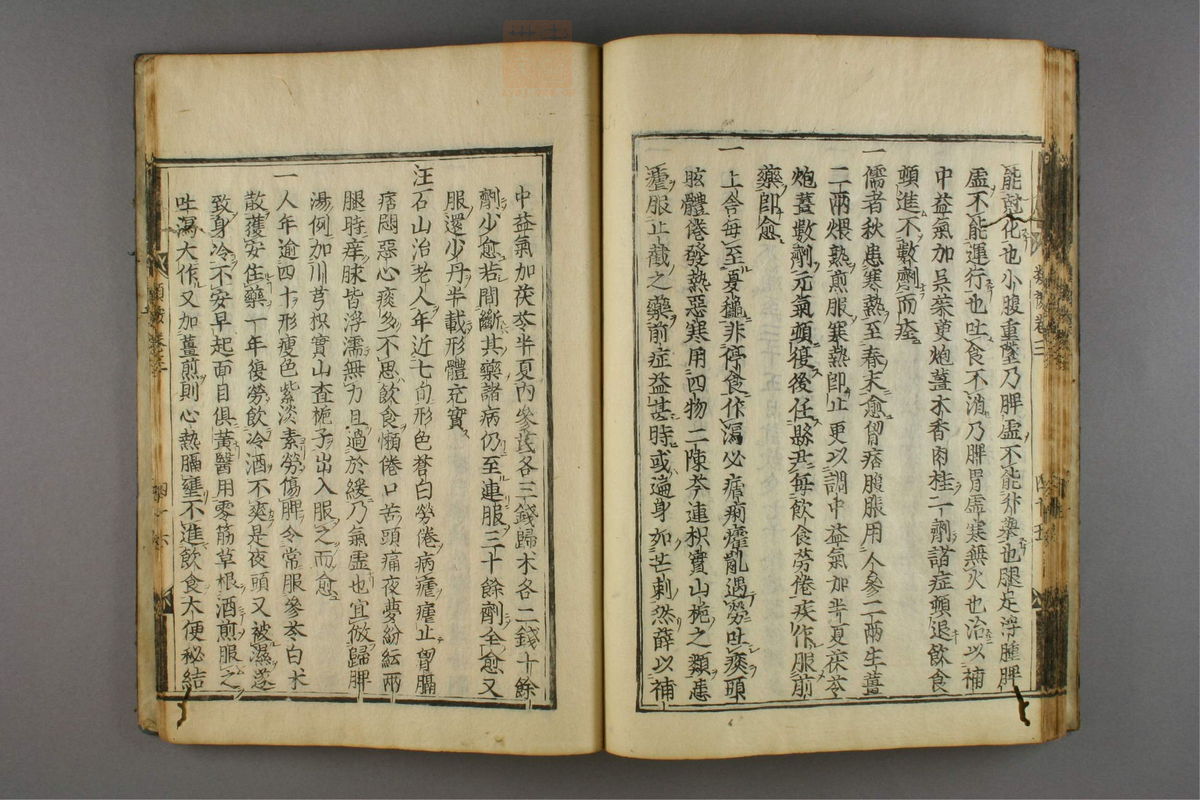 能尅化也小腹重墜乃脾虛不能升擧也腿足浮腫脾
虛不能運行也吐食不消乃脾胃虛寒無火也治以補
中益氣加吳茱萸炮薑木香肉桂二劑諸症頓退飲食
頓進不數劑而痊
一儒者秋患寒熱至春末愈胷痞腹脹用人參二兩生薑
二兩煨熟煎服寒熱即止更以調中益氣加半夏茯苓
炮薑數劑元氣頓復後任縣尹每飲食勞倦疾作服前
藥即愈
一上舍每至夏穐非停食作瀉必瘧痢霍亂遇勞吐痰頭
眩體倦發熱惡寒用四物二陳芩連枳實山梔之類患
瘧服止截之藥前症益甚時或遍身如芒刺然薛以補
中益氣加茯苓半夏內參芪各三錢歸术各二錢十餘
劑少愈若間斷其藥諸病仍至連服三十餘劑全愈又
服還少丹半載形體充實
汪石山治老人年近七旬形色蒼白勞倦病瘧瘧止胷膈
痞悶惡心痰多不思飲食懶倦口苦頭痛夜夢紛紜兩
腿時痒脉皆浮濡無力且過於緩乃氣虛也宜倣歸脾
湯例加川芎枳實山查梔子出入服之而愈
一人年逾四十形瘦色紫淡素勞傷脾令常服參苓白术
散獲安住藥一年復勞飲冷酒不爽是夜頭又被濕遂
致身冷不安早起面目俱黃醫用零筋草根酒煎服之
吐瀉大作又加薑煎則心熱膈壅不進飲食大便秘結
類案卷三
四十五